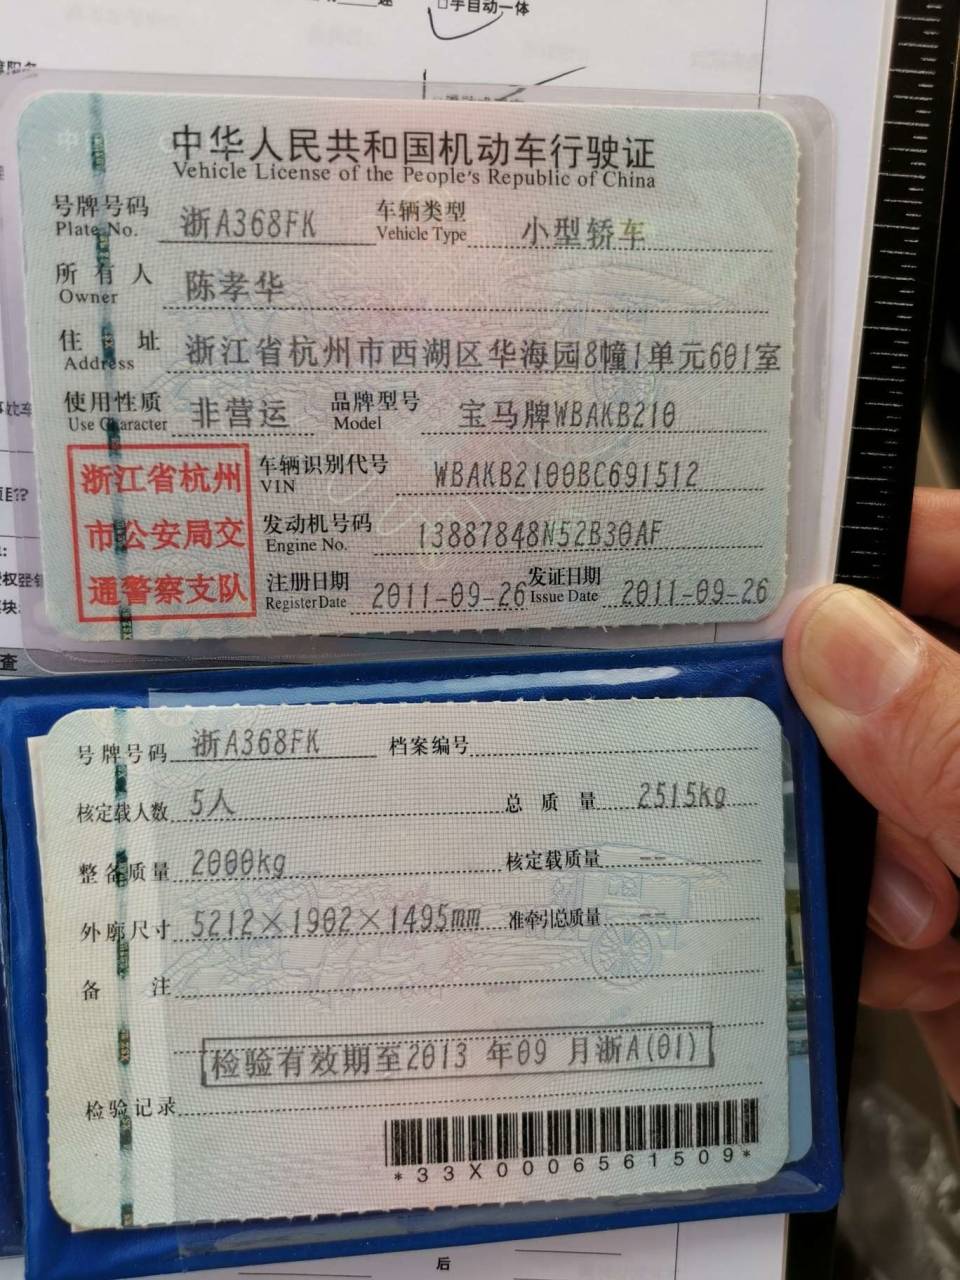 手自动一体
中华人民共和国机动车行驶证
Vehicle License of the People's Republic of China
号牌号码 浙A368FK 车辆类型 小型轿车
Plate No. Vehicle Type
所有人 陈孝华
Owner
住址 浙江省杭州市西湖区华海园8幢1单元601室
Address
使用性质 非营运 品牌型号 宝马牌WBAKB210
Use Character Model
浙江省杭州
市公安局交
通警察支队
车辆识别代号 WBAKB2100BC691512
VIN
发动机号码 13887848N52B30AF
Engine No.
注册日期 2011-09-26 发证日期 2011-09-26
Register Date Issue Date
查
号牌号码 浙A368FK 档案编号
核定载人数 5人 总质量 2515kg
整备质量 2000kg 核定载质量 --
外廓尺寸 5212×1902×1495mm 准牵引总质量 --
备注
检验有效期至2013 年09 月浙A(01)
检验记录
*33X0006561509*
后